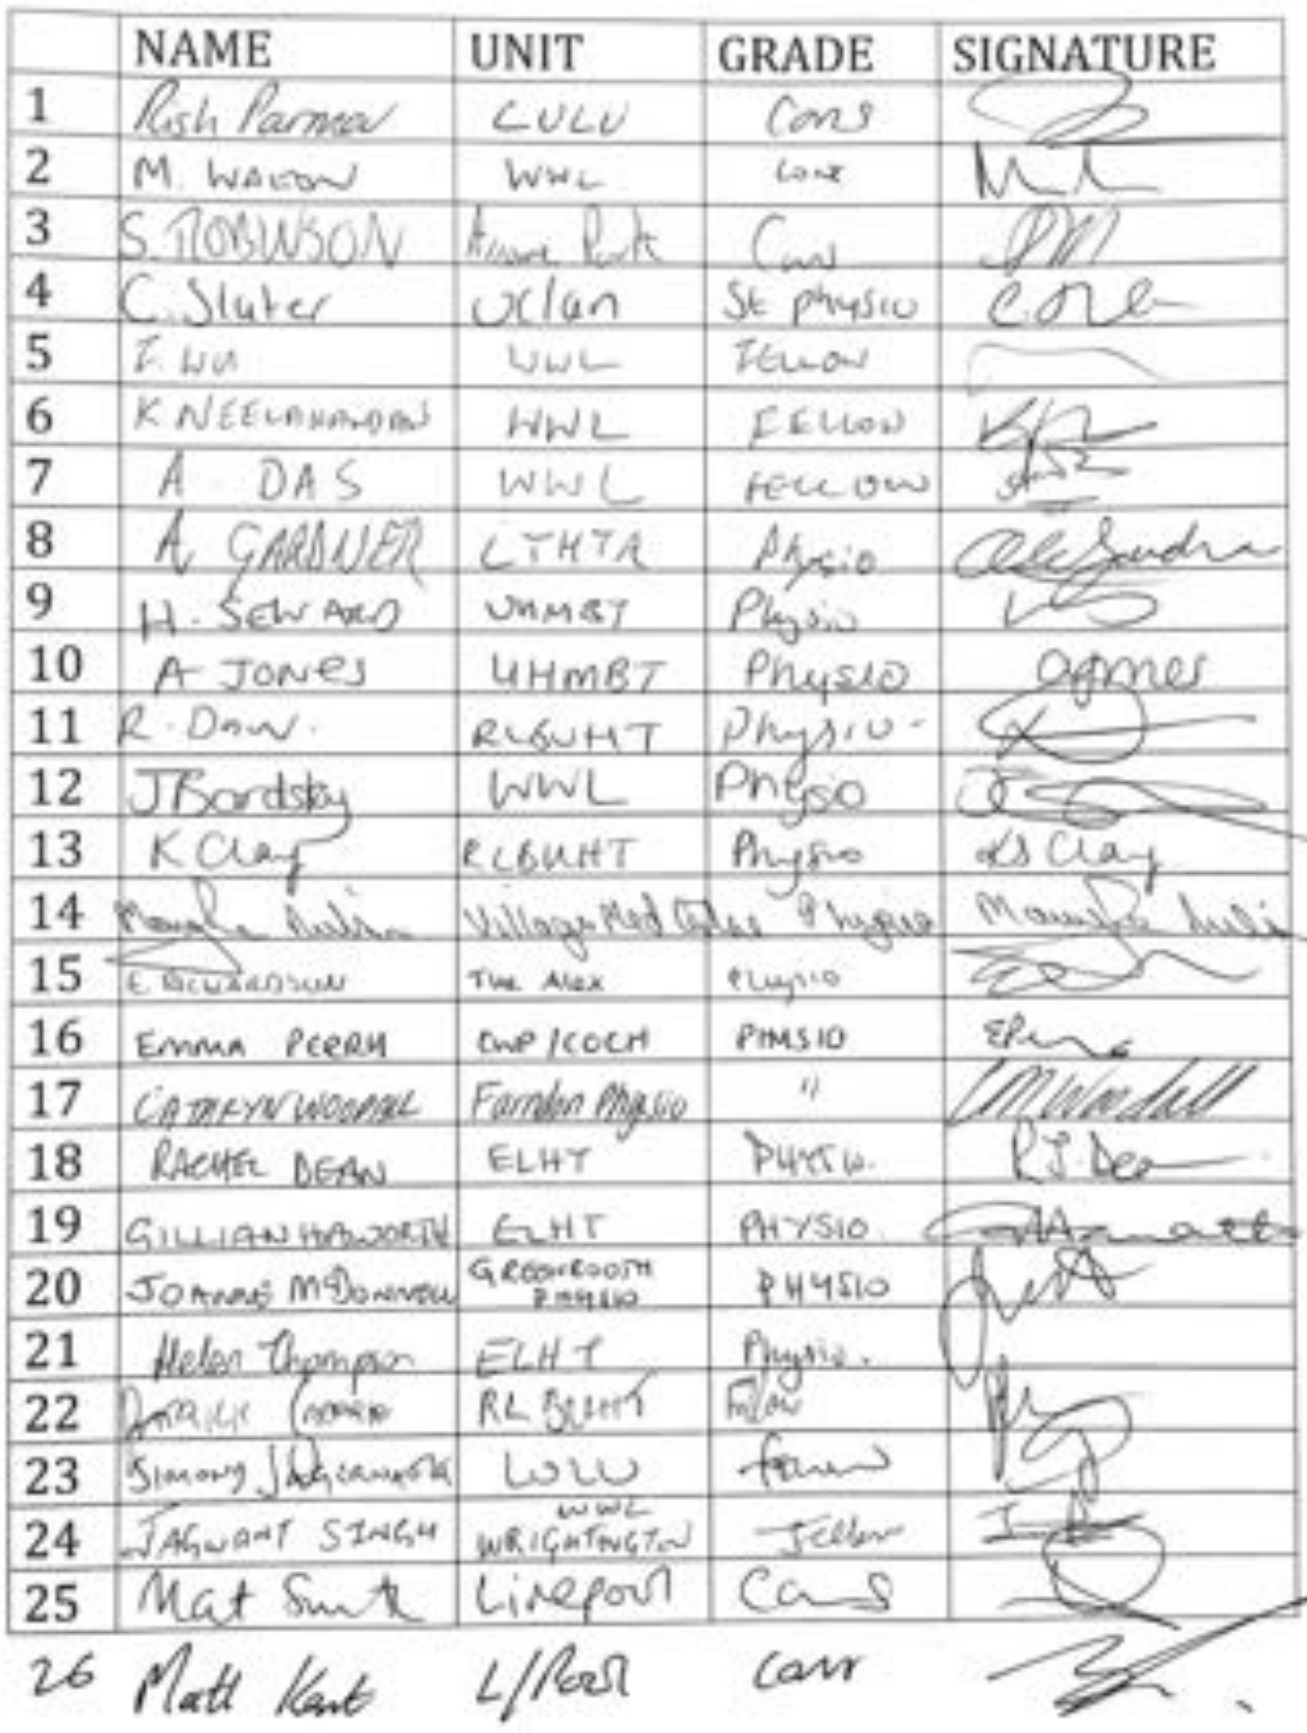 NAME UNIT GRADE SIGNATURE
1 Rish Parmar LULU Cons
2 M. WALTON WWL Cons
3 S. ROBINSON Park Cons
4 C. Slater Uclan St physio
5 F. WU WWL FELLOW
6 K NEELAKANDAN WWL FELLOW
7 A DAS WWL FELLOW
8 A. GARDNER LTHTR Physio Alexandra
9 H. SEWARD UHMBT Physio
10 A JONES UHMBT Physio agnes
11 R. Daw. RLBUHT Physio.
12 J Bardsley WWL Physio
13 K Clay RLBUHT Physio KS Clay
14 Village Med Physio
15 E RICHARDSON The Alex Physio
16 EMMA PERRY CWP/COCH PHYSIO
17 CATHRYN WOODALL Farndon Physio " CMWoodall
18 RACHEL DEAN ELHT PHYSIO. R.J. Dean
19 GILLIAN HAWORTH ELHT PHYSIO.
20 JOANNE McDONNELL GREENROOTH PHYSIO PHYSIO
21 Helen Thompson ELHT Physio.
22 RLBUHT Fellow
23 WWL
24 JAGWANT SINGH WWL WRIGHTINGTON Fellow
25 Mat Smith Liverpool Cons
26 Matt Kent L/Pool Cons